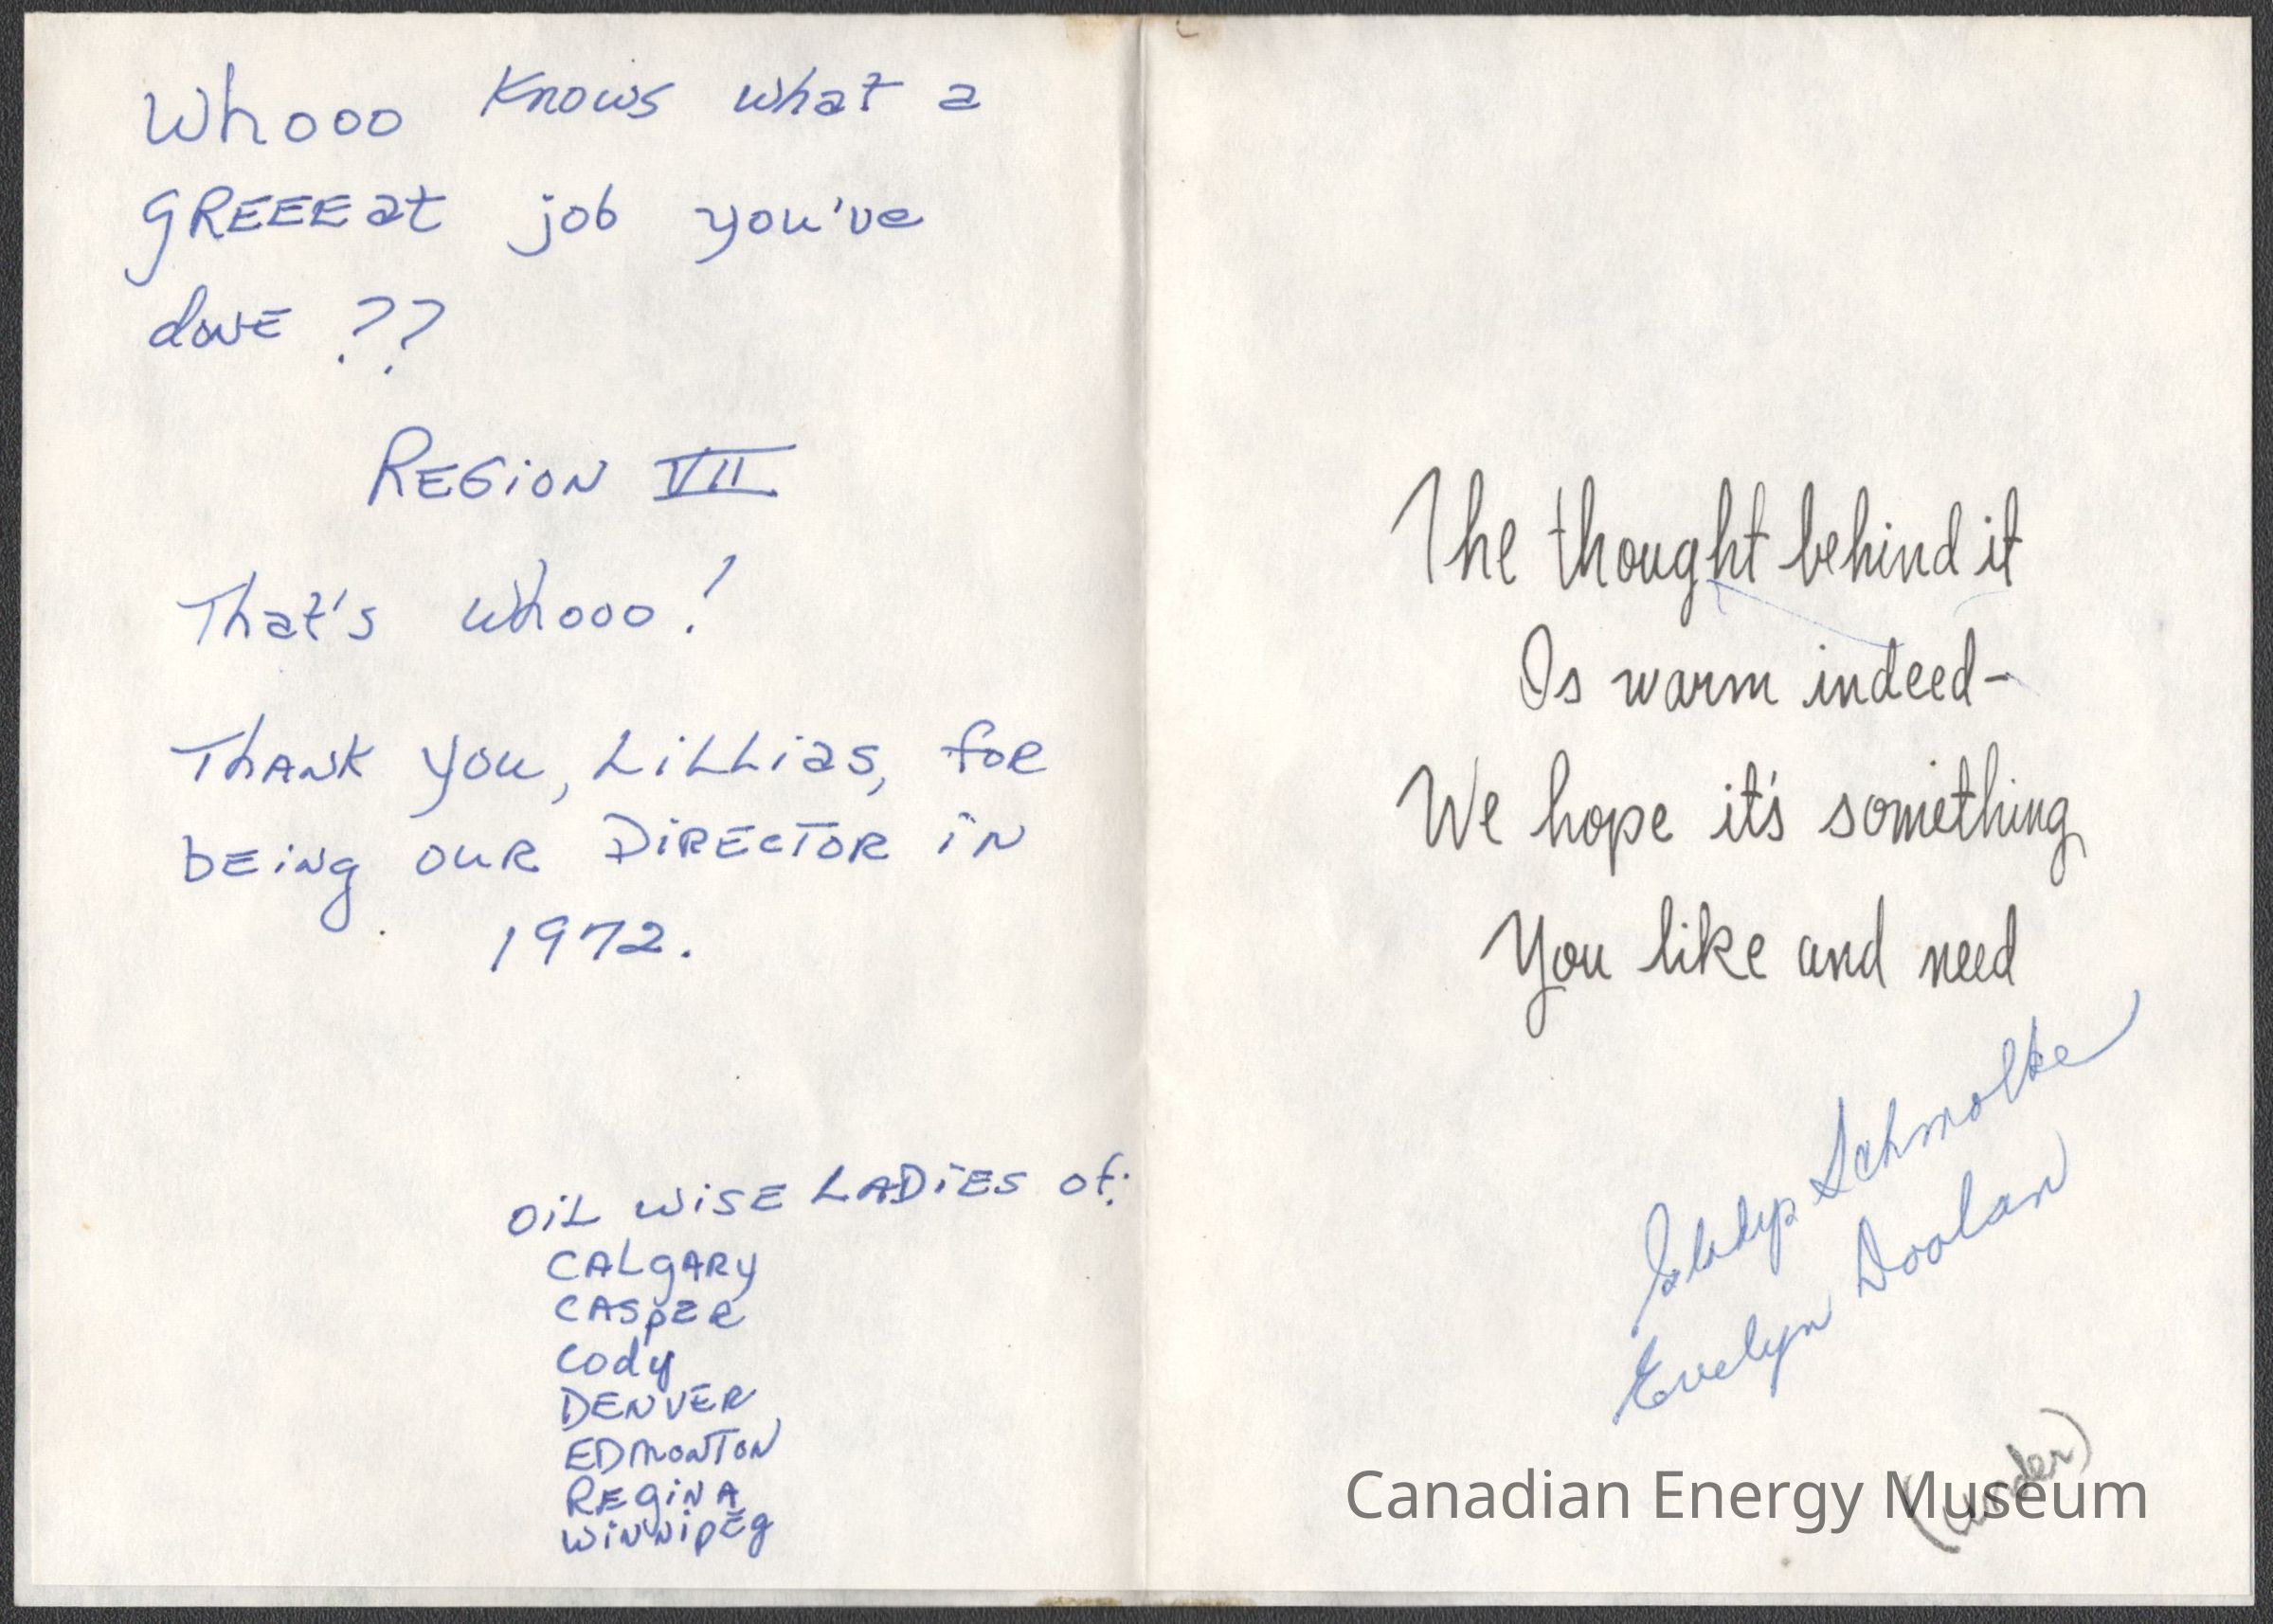 Whooo Knows what a
GREEEat job you've
done ??
REGiON VII
That's whooo!
ThANK you, LiLLias, foR
bEiNg OUR DiRECTOR iN
1972.
OiL WiSE LADiES of:
CALgARy
CASpER
Cody
DENVER
EDMONTON
REgiNA
WiNNipEg
The thought behind it
Is warm indeed-
We hope it's something
You like and need
Gladys Schmolke
Evelyn Doolan
(under)
Canadian Energy Museum